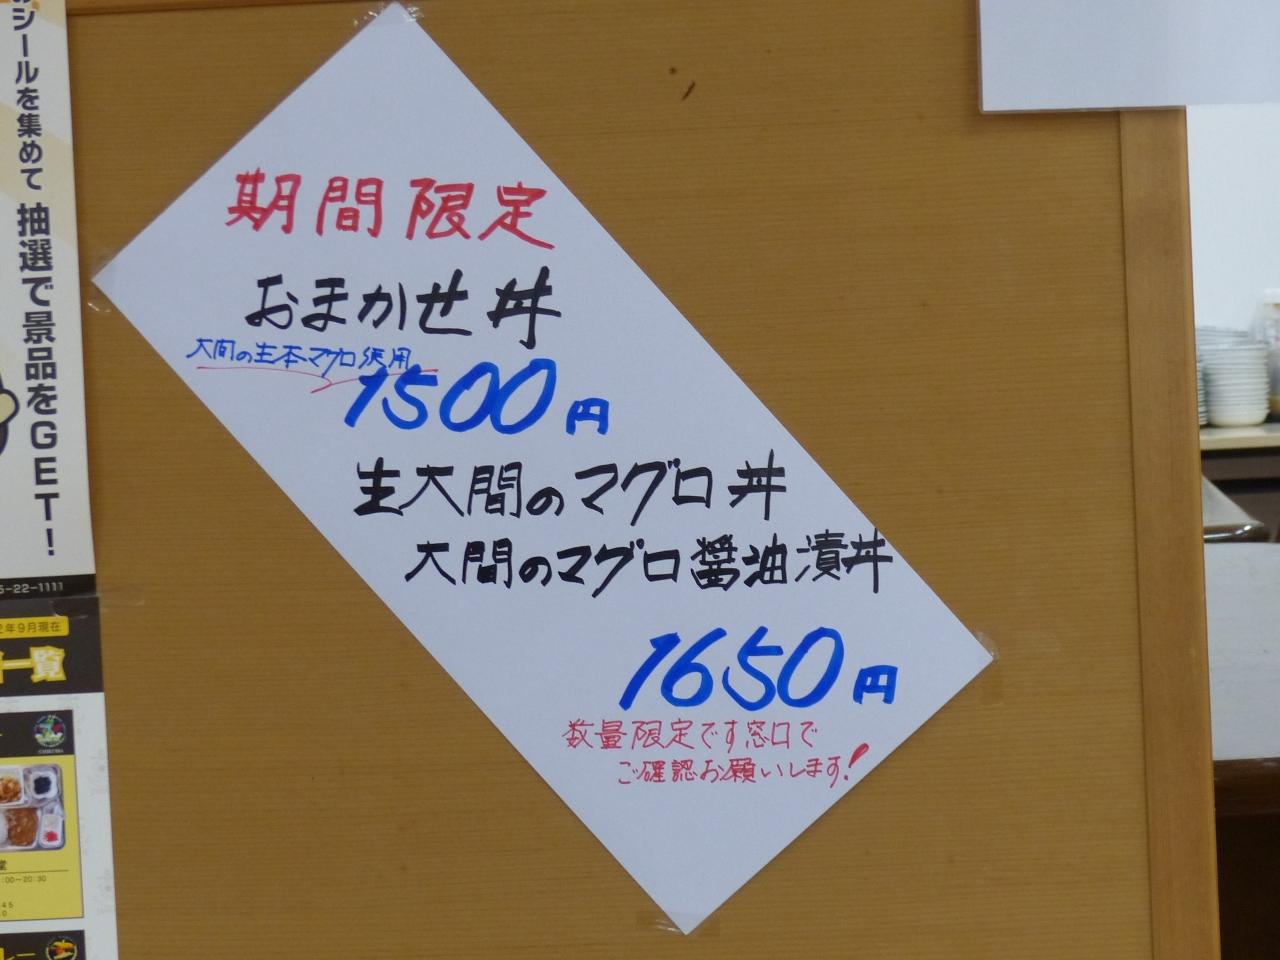 シールを集めて 抽選で景品をGET!
5-22-1111
2年9月現在
一覧
:00~20:30
期間限定
おまかせ丼
大間の生本マグロ使用
1500円
生大間のマグロ丼
大間のマグロ醤油漬丼
1650円
数量限定です窓口で
ご確認お願いします!